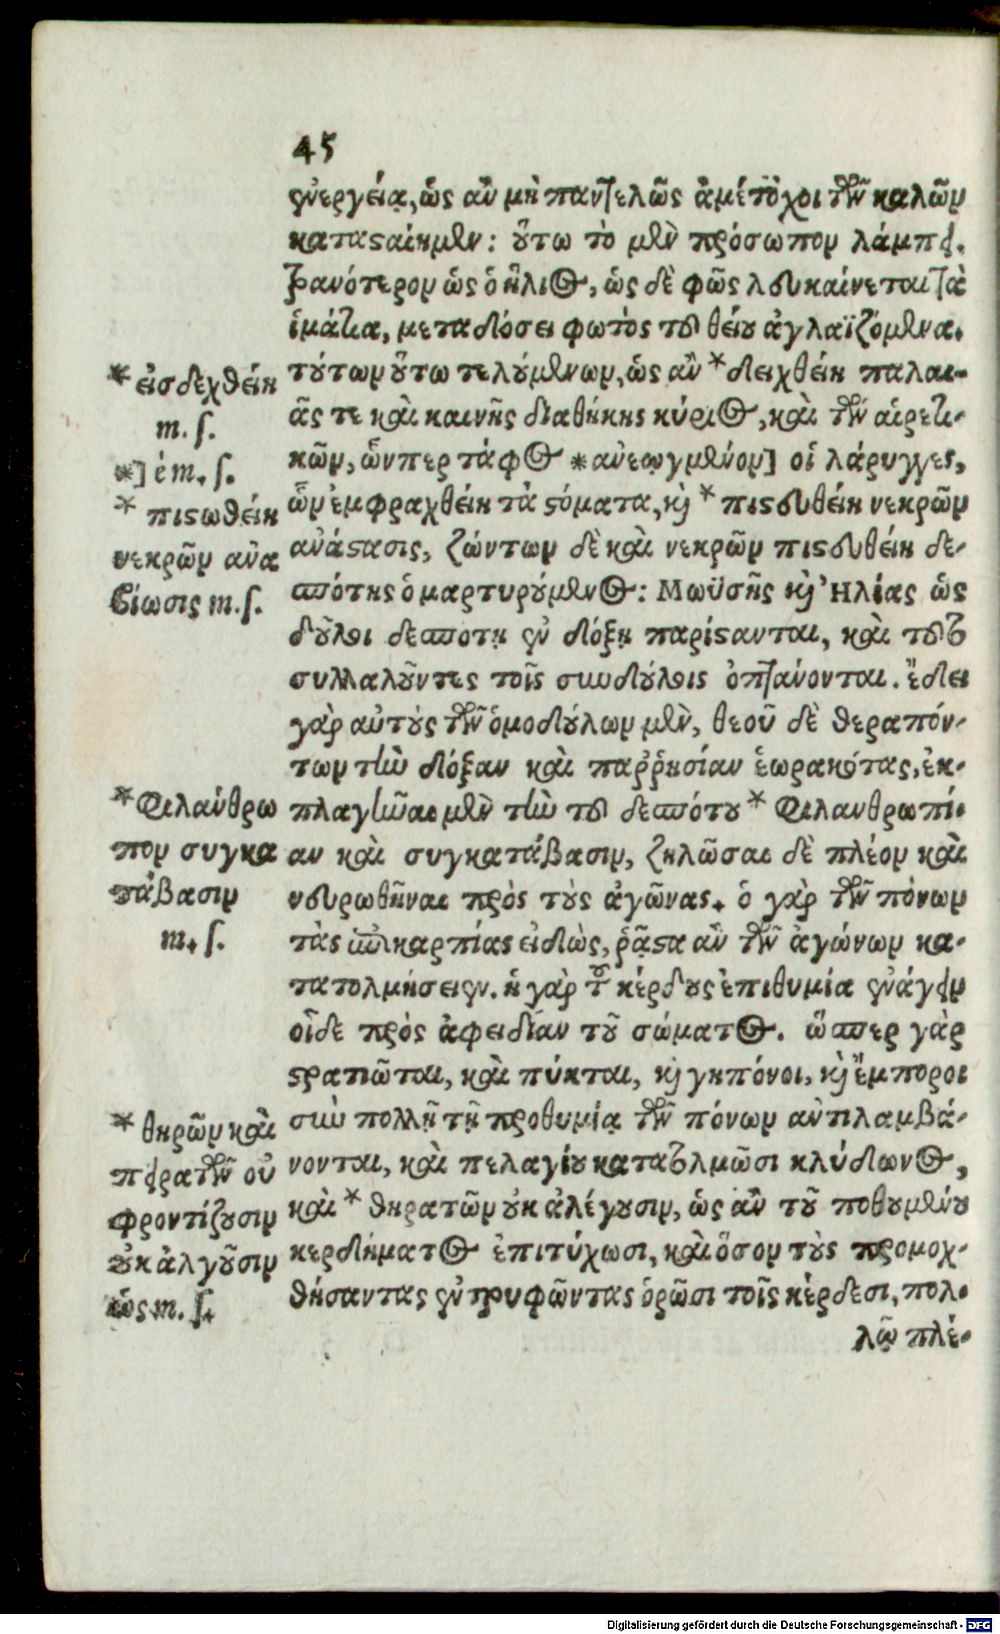 45
ἐνεργείᾳ, ὡς ἂν μὴ παντελῶς ἀμέτοχοι τῶν καλῶν
καταςαίημεν: οὕτω τὸ μὲν πρόσωπον λάμπει
φανότερον ὡς ὁ ἥλιος, ὡς δὲ φῶς λευκαίνεται τὰ
ἱμάτια, μεταδόσει φωτὸς τοῦ θείου ἀγλαϊζόμενα.
τούτων οὕτω τελουμένων, ὡς ἂν * δειχθείη παλαι-
ᾶς τε καὶ καινῆς διαθήκης κύριος, καὶ τῶν αἱρετι-
κῶν, ὧνπερ τάφος *ἀνεῳγμένον] οἱ λάρυγγες,
ὧν ἐμφραχθείη τὰ ςόματα, κỳ * πιςευθείη νεκρῶν
ἀνάςασις, ζώντων δὲ καὶ νεκρῶν πιςευθείη δε-
σπότης ὁ μαρτυρούμενος: Μωϋσῆς κỳ Ἠλίας ὡς
δοῦλοι δεσποτη ἐν δόξη παρίςανται, καὶ τοῦτο
συλλαλοῦντες τοῖς συνδούλοις ὀπτάνονται. ἔδει
γὰρ αὐτοὺς τῶν ὁμοδούλων μὲν, θεοῦ δὲ θεραπόν-
των τὴν δόξαν καὶ παῤῥησίαν ἑωρακότας, ἐκ-
πλαγῆναι μὲν τὴν τοῦ δεσπότου * Φιλανθρωπί-
αν καὶ συγκατάβασιν, ζηλῶσαι δὲ πλέον καὶ
νευρωθῆναι πρὸς τοὺς ἀγῶνας. ὁ γὰρ τῶν πόνων
τὰς ἐπικαρπίας εἰδὼς, ῥᾷςα ἂν τῶν ἀγώνων κα-
τατολμήσειεν. ἡ γὰρ τοῦ κέρδους ἐπιθυμία ἐνάγειν
οἶδε πρὸς ἀφειδίαν τοῦ σώματος. ὥσπερ γὰρ
ςρατιῶται, καὶ πύκται, κỳ γηπόνοι, κỳ ἔμποροι
σὺν πολλῇ τῇ προθυμίᾳ τῶν πόνων ἀντιλαμβά-
νονται, καὶ πελαγίου κατατολμῶσι κλύδωνος,
καὶ * θηρατῶν οὐκ ἀλέγουσιν, ὡς ἂν τοῦ ποθουμένου
κερδήματος ἐπιτύχωσι, καὶ ὅσον τοὺς προμοχ-
θήσαντας ἐντρυφῶντας ὁρῶσι τοῖς κέρδεσι, πολ-
λῷ πλέ-
* εἰσδεχθείη
m. ſ.
*] è m. ſ.
* πιςωθείη
νεκρῶν ἀνα
βίωσις m. ſ.
* Φιλάνθρω
πον συγκα
τάβασιν
m. ſ.
* θηρῶν καὶ
πειρατῶν οὐ
φροντίζουσιν
οὐκ ἀλγοῦσιν
ὡς m. ſ.
Digitalisierung gefördert durch die Deutsche Forschungsgemeinschaft - DFG